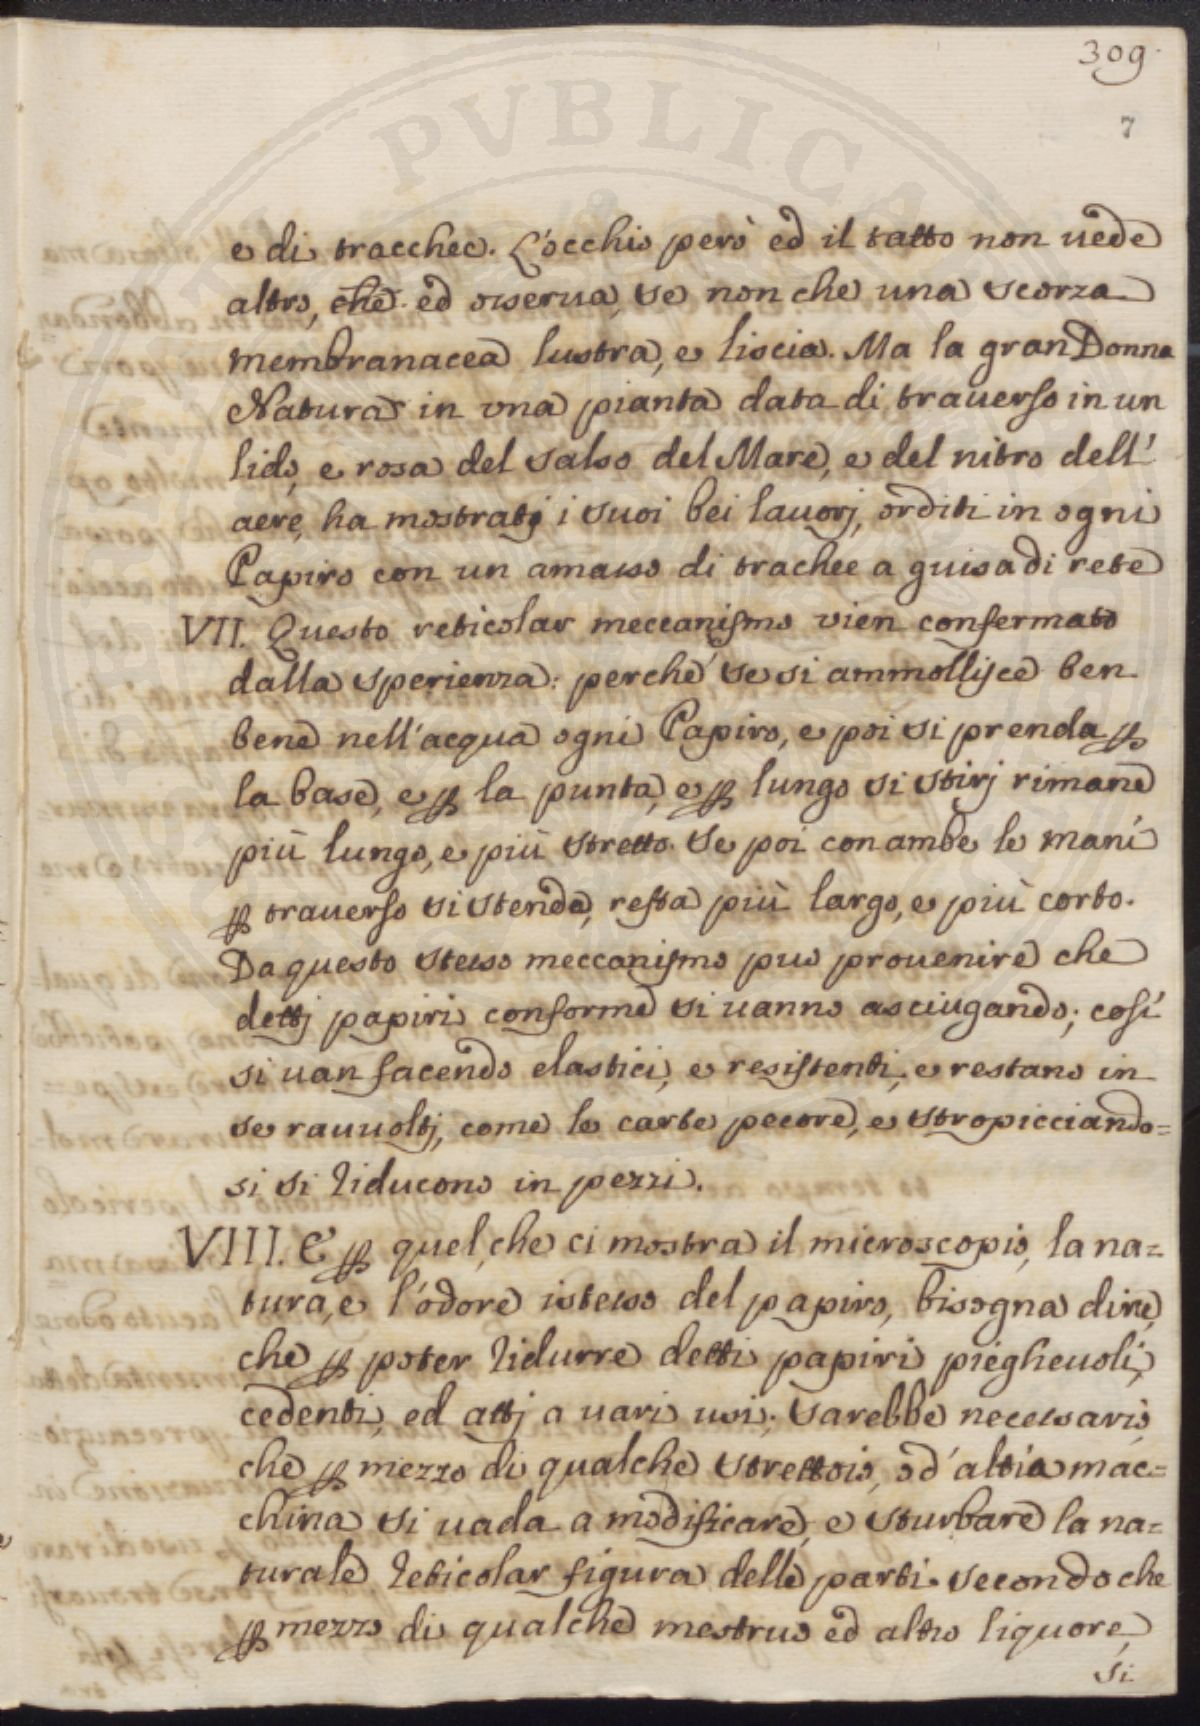 309
7
e di tracchee. L'occhio però ed il tatto non uede
altro, che ed osserua, se non che una scorza
membranacea lustra, e liscia. Ma la gran Donna
Natura in una pianta data di trauerso in un
lido, e rosa del salso del Mare, e del nitro dell'
aere, ha mostratj i suoi bei lauorj, orditi in ogni
Papiro con un amasso di trachee a guisa di rete
VII. Questo reticolar meccanismo vien confermato
dalla sperienza: perche' se si ammollisce ben
bene nell'acqua ogni Papiro, e poi si prenda ꝑ
la base, e ꝑ la punta, e ꝑ lungo si stirj rimane
più lungo, e più stretto. Se poi con ambe le mani
ꝑ trauerso si stenda, resta più largo, e più corto.
Da questo stesso meccanismo può prouenire che
dettj papiri conforme si uanno asciugando; così
si uan facendo elastici, e resistenti, e restano in
se rauuoltj, come le carte pecore, e stropicciando=
si si riducono in pezzi.
VIII. E ꝑ quel, che ci mostra il microscopio, la na=
tura, e l'odore istesso del papiro, bisogna dire,
che ꝑ poter ridurre detti papiri pieghevoli,
cedenti, ed attj a uari usi; sarebbe necessario,
che ꝑ mezzo di qualche strettoio, od' altra mac=
china si uada a modificare, e sturbare la na=
turale reticolar figura delle parti. secondo che
ꝑ mezzo di qualche mestruo ed altro liquore,
si
PVBLICA